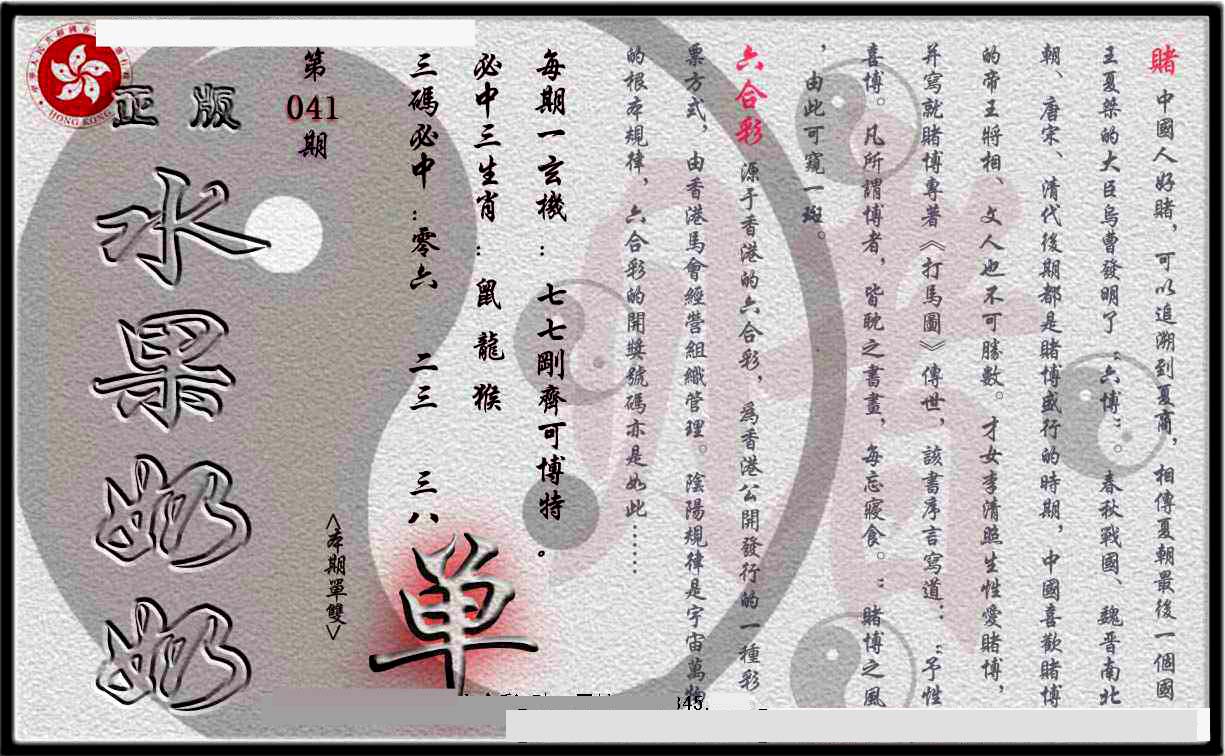 賭 中國人好賭，可以追溯到夏商，相傳夏朝最後一個國
王夏桀的大臣烏曹發明了“六博”。春秋戰國、魏晋南北
朝、唐宋、清代後期都是賭博盛行的時期，中國喜歡賭博
的帝王將相、文人也不可勝數。才女李清照生性愛賭博，
并寫就賭博專著《打馬圖》傳世，該書序言寫道：“予性
喜博。凡所謂博者，皆耽之晝畫，每忘寢食。”賭博之風
，由此可窺一斑。
六合彩 源于香港的六合彩，為香港公開發行的一種彩
票方式，由香港馬會經營組織管理。陰陽規律是宇宙萬物
的根本規律，六合彩的開獎號碼亦是如此……
每期一玄機：七七剛齊可博特。
必中三生肖：鼠 龍 猴
三碼必中：零六 二三 三八
<本期單雙>
单
第
041
期
正 版
水果奶奶
HONG KONG
345.